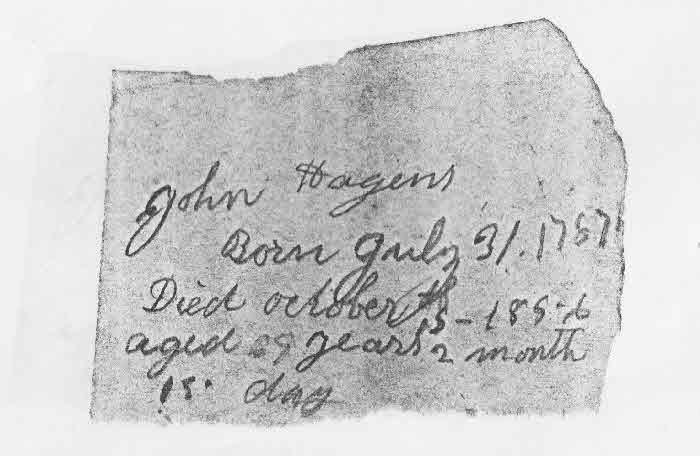 John Hagens
Born July 31. 1787
Died october th
15 - 185
aged years 2 month
15. day